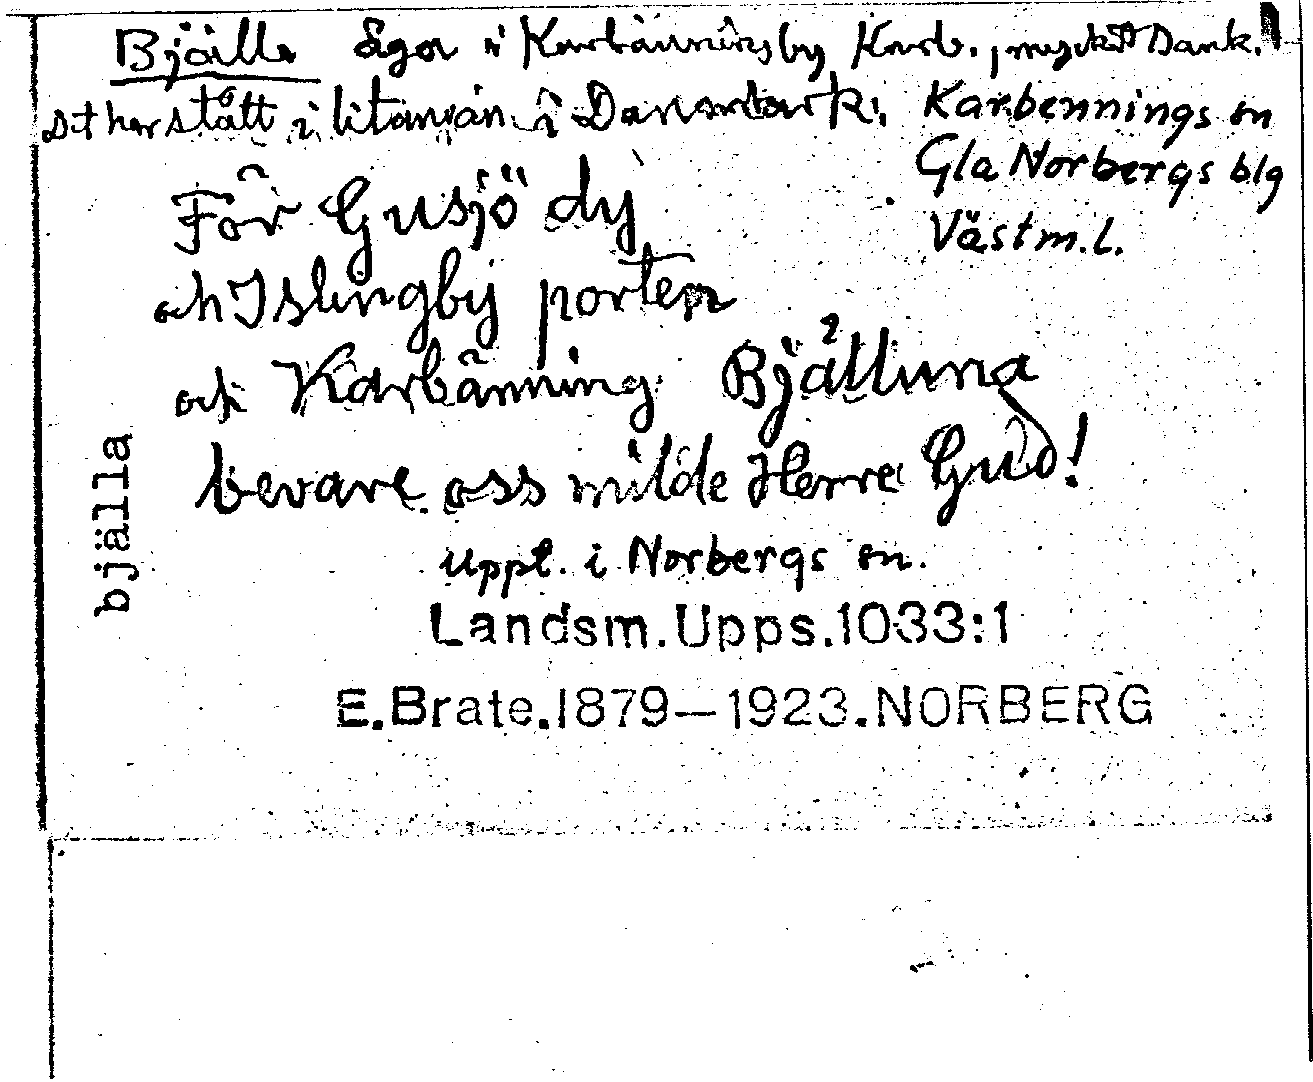 Bjälla ägor i Karbänningsby Karb., mycket Dank.
Det har stått i litanian i Danmark.
Karbennings sn
Gla Norbergs blg
Västm.l.
För Gusjö dy
och Islingby porten
och Karbänning Bjälluna
bevare oss milde Herre Gud!
bjälla
Uppt. i Norbergs sn.
Landsm.Upps.1033:1
E.Brate.1879—1923.NORBERG